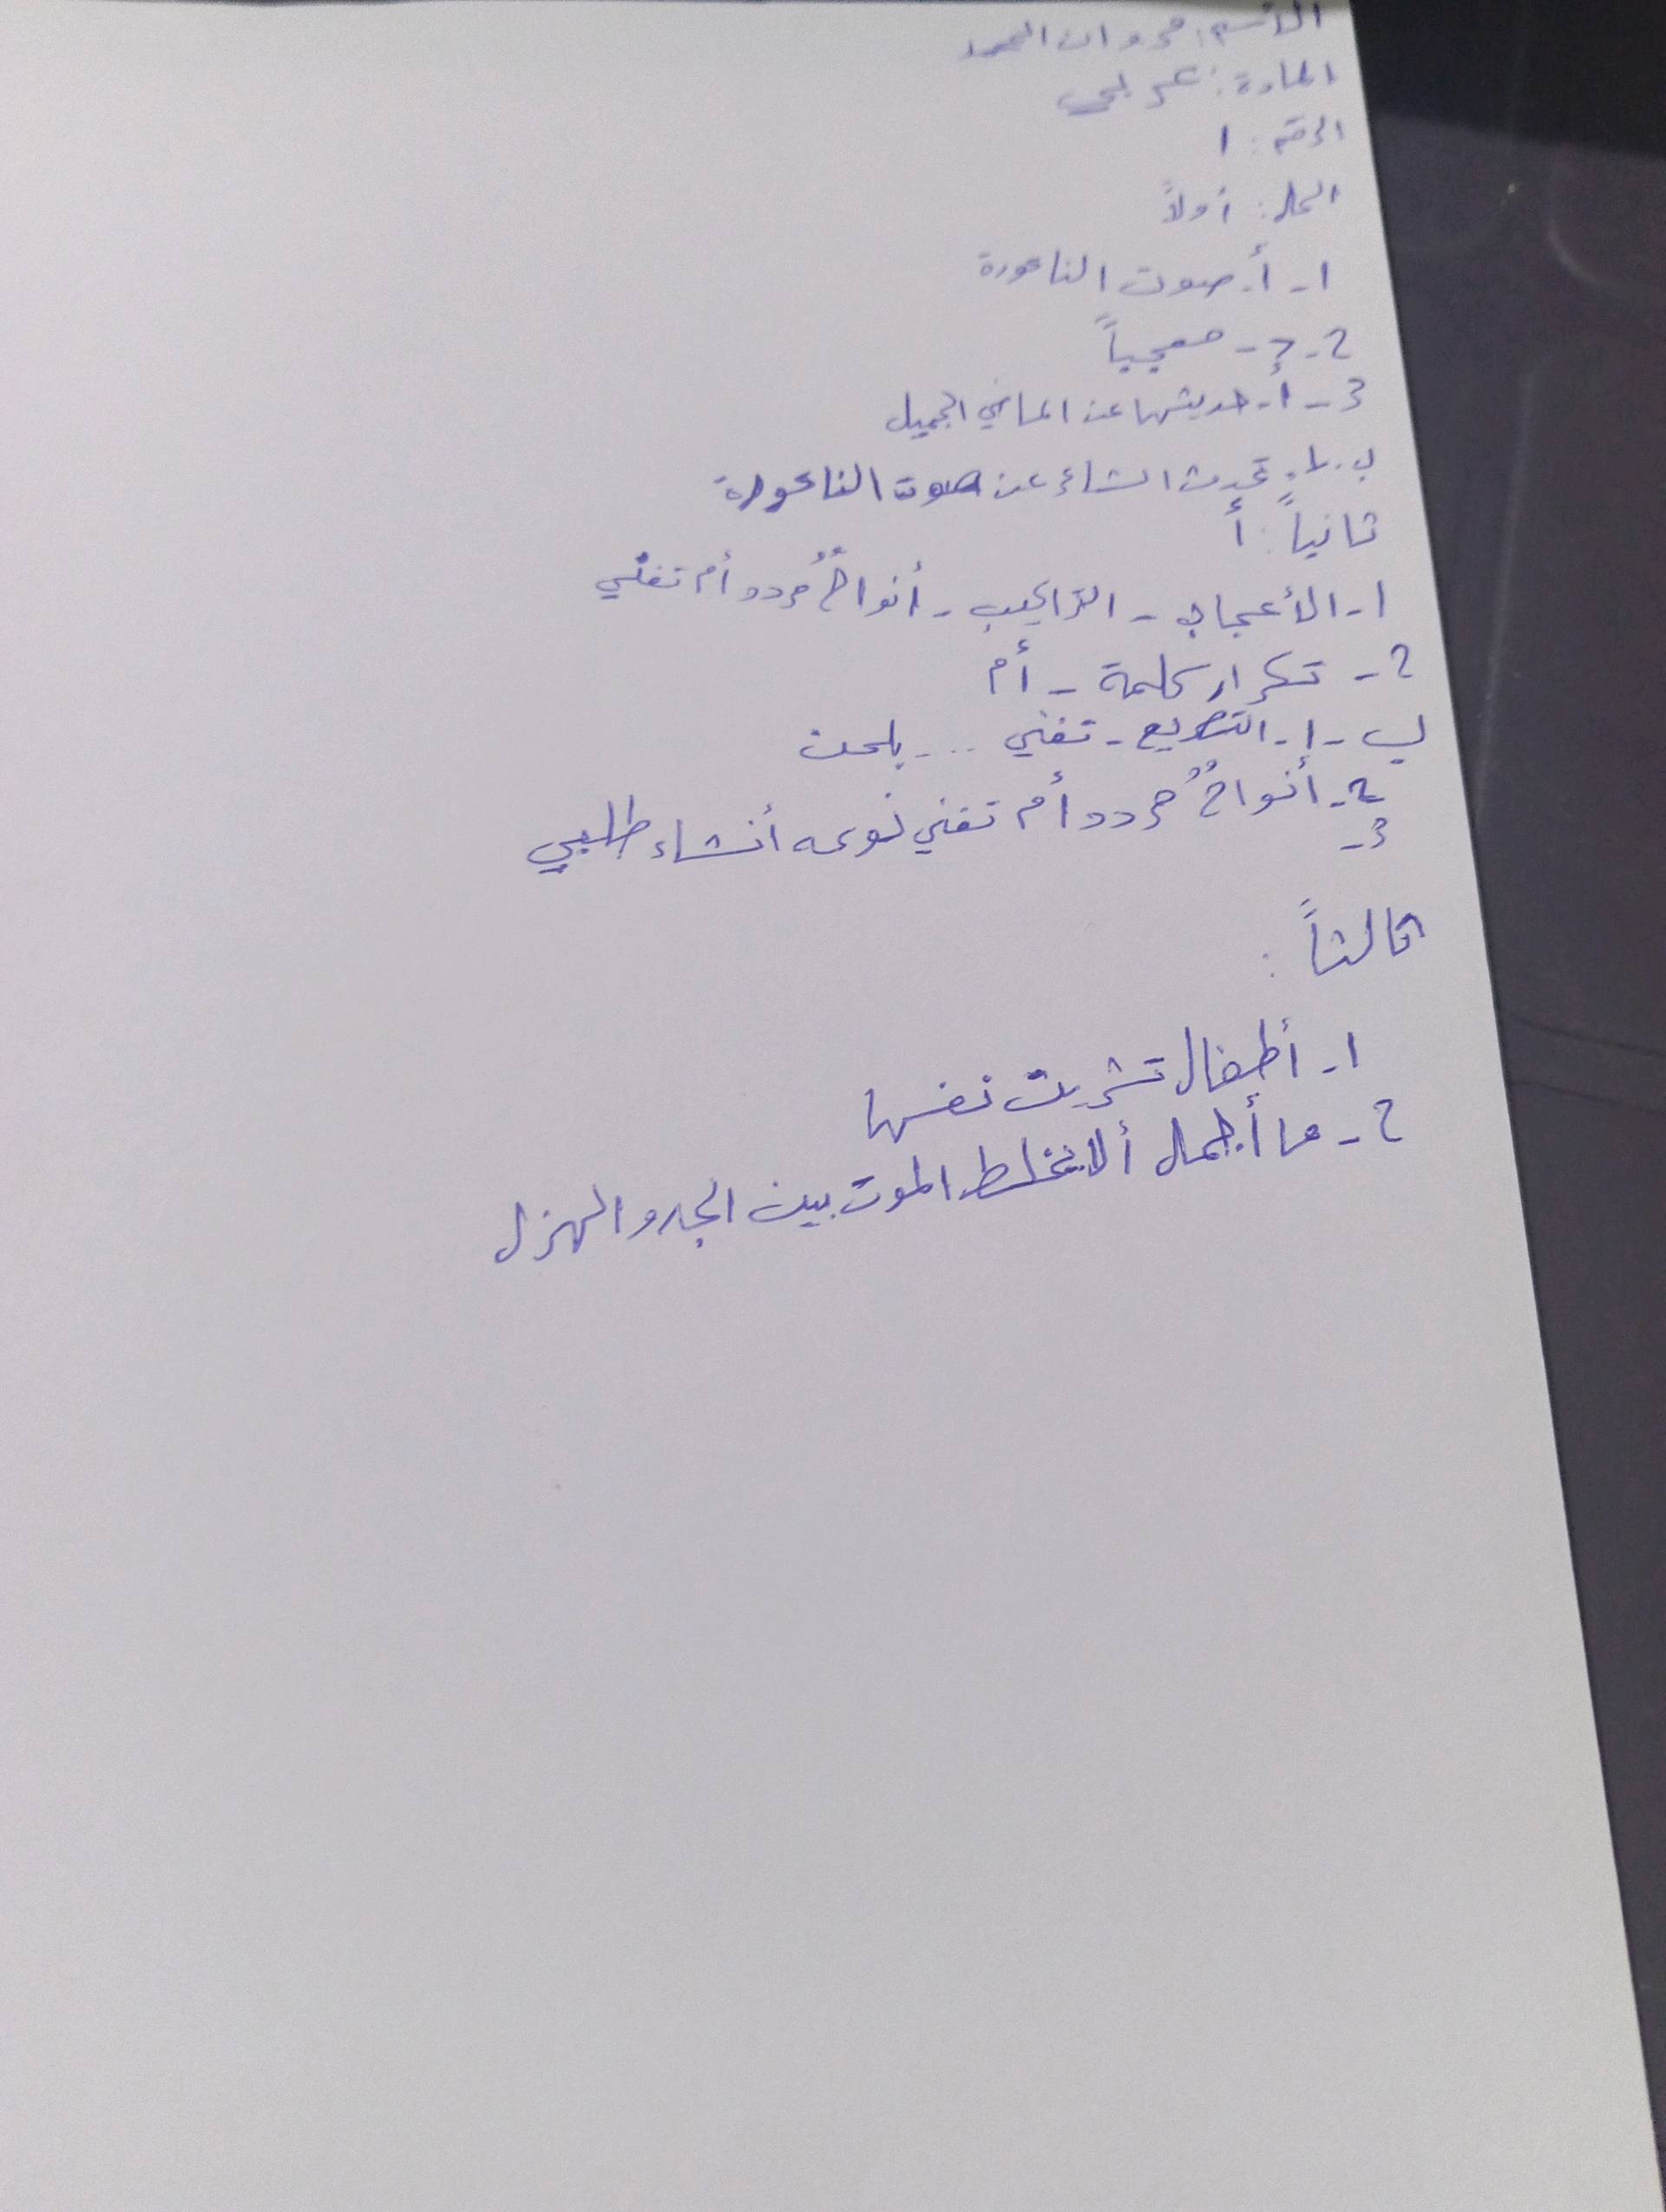 الأسم: مروان الحمد
المادة: عربي
الرقم: 1
الحل: أولاً
1- أ- صوت الناعورة
2- ج - معجباً
3- أ- حديثها عن الماضي الجميل
ب.1. تحدث الشاعر عن صوت الناعورة
ثانياً: أ
1- الأعجاب - التراكيب - أنواحٌ مردد أم تغني
2- تكرار كلمة - أم
ب - 1- التصريع - تغني ... بلحن
2- أنواحٌ مردد أم تغني نوعه أنشاء طلبي
3-
ثالثاً:
1- أطفال تشرين نفسها
2- ما أجمل ألا نخلط الموت بين الجد والهزل